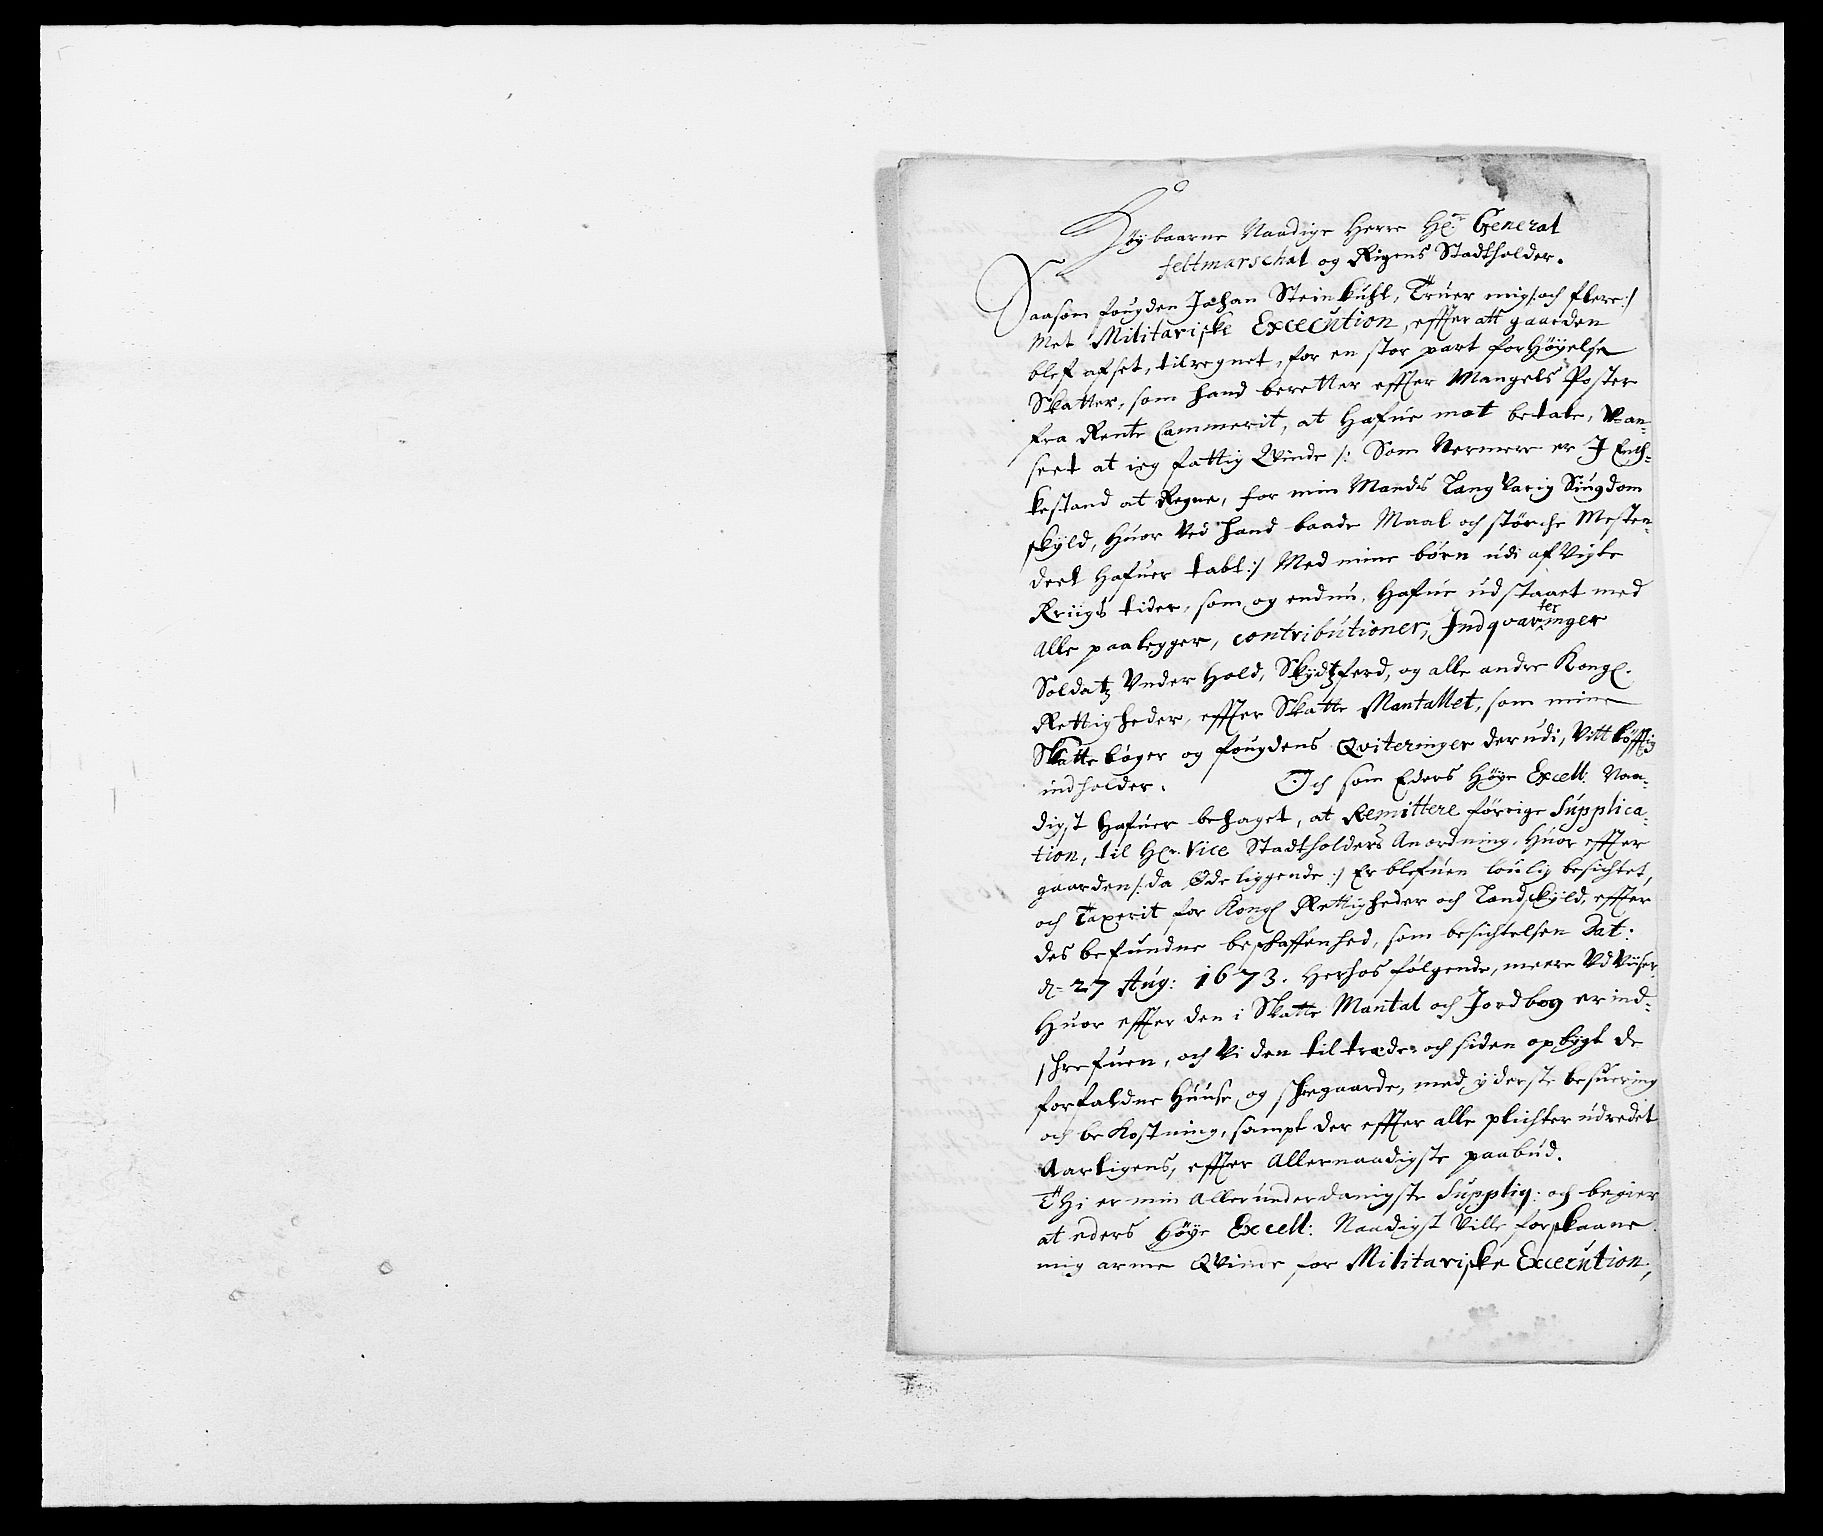 Høybaarne Naadige Herre Hr. General
feltmarschal og Rigens Stadtholder.
Saasom fougden Johan Steinkuhl, Truer mig /: och flere :/
Met Militariske Excecution, effter att gaarden
blef afset, tilregnet, for en stor part forhøyelse
Skatter, som hand beretter effter Mangels Poster
fra Rente Cammerit, at Hafue mot betale, Van-
seet at ieg fattig Qvinde /: Som Nermere er I Enche-
kestand at Regne, for min Mands Langvarig Siugdom
skyld, Huor ved hand baade Maal och størche Mesten-
deel Hafuer tabt :/ Med mine børn udi afvigte
Kriigs tider, som og endnu, Hafue udstaaet med
Alle paalegger, contributioner, Indqvarteringer
Soldatz Underhold, Skydtzferd, og alle andre Kongl.
Rettigheder, effter Skatte Mantallet, som mine
Skattebøger og fougdens Qviteringer derudi, Vittløfftig
indholder. Och som Eders Høye Excell: Naa-
digst Hafuer behaget, at Remittere forrige Supplica-
tion, til Hr. Vice Stadtholders Anordning, Huor effter
gaarden /: da Øde liggende :/ Er blefuen loulig besichtet,
och Taxerit for Kongl Rettigheder och Landskyld, effter
des befundne beskaffenhed, som besichtelsen Dat:
d. 27 Aug: 1673. Herhos følgende, meere Udviiser,
Huor effter den i Skatte Mantal och Jordbog er ind-
schrefuen, och Vi den tiltræde och siden opbygt de
forfaldne Huuse og schregaarde, med yderste besuering
och bekostning, sampt der effter alle plichter udredet
Aarligens, effter Allernaadigste paabud.
Thi er min Allerunderdanigste Suppliq: och begier
at eders Høye Excell: Naadigst Ville forskaane
mig arme Qvinde for Militariske Excecution,